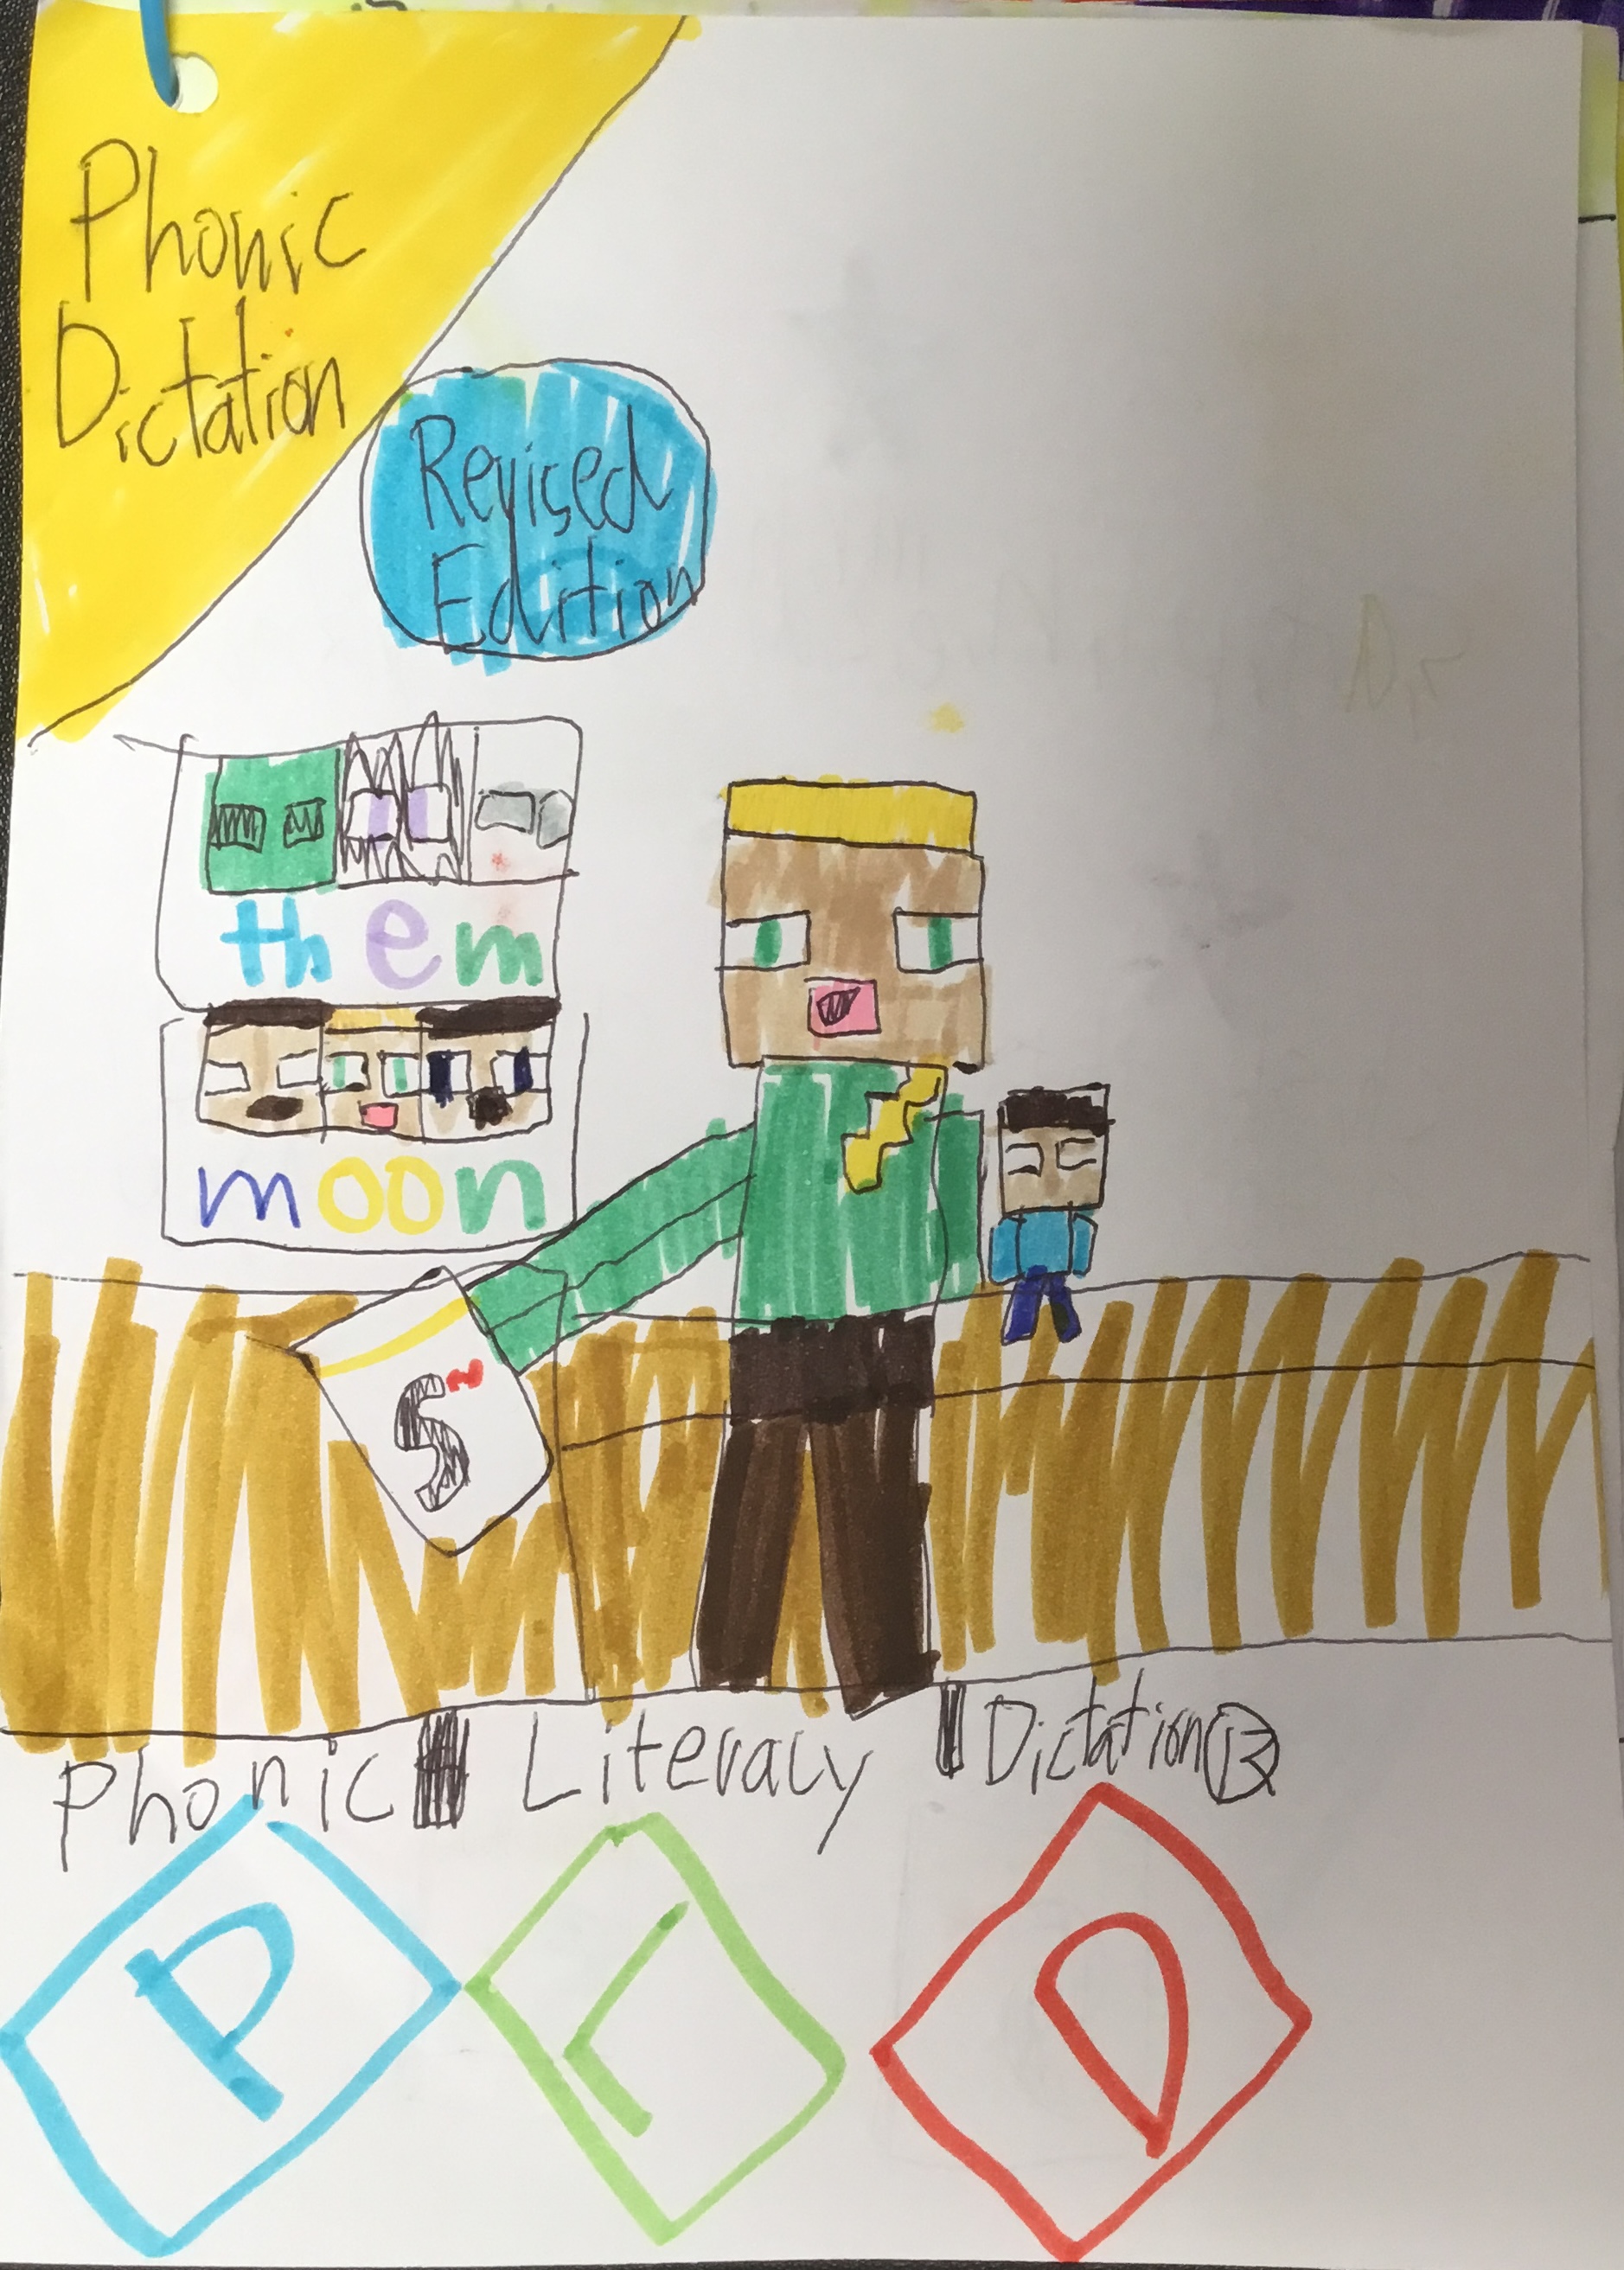 Phonic
Dictation
Revised
Edition
them
moon
S~
Phonic Literacy Dictation
P L D